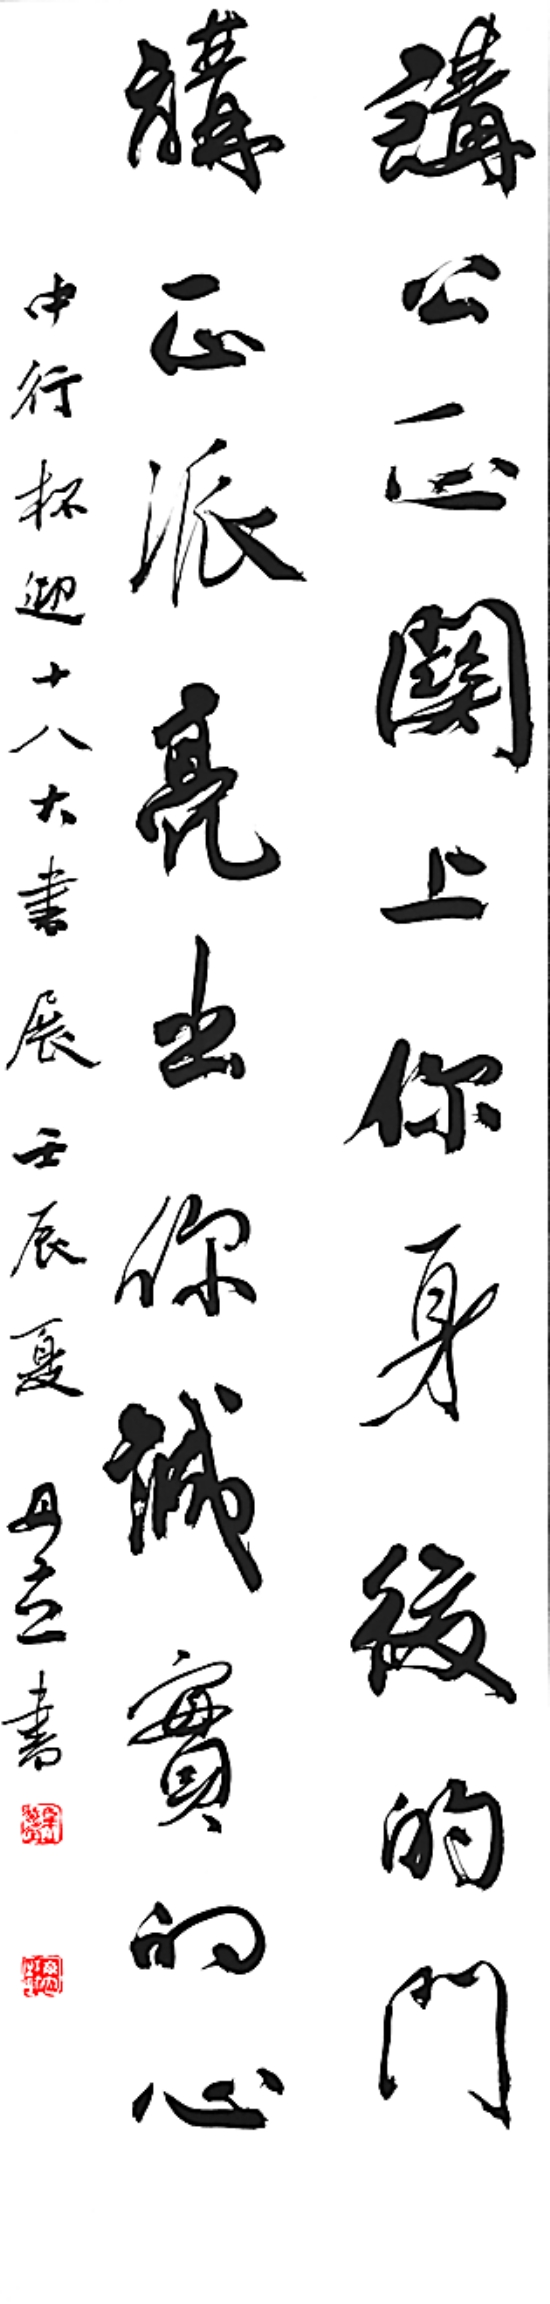 講公正關上你身後的門
講正派亮出你誠實的心
中行杯迎十八大書展壬辰夏 丹立書